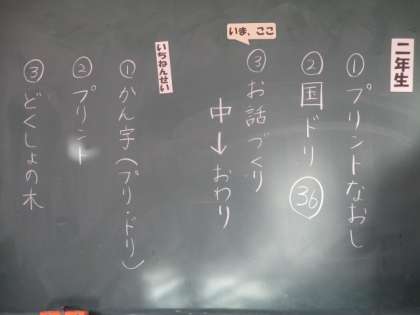 二年生
①プリントなおし
②国ドリ㊱
いま、ここ
③お話づくり
中→おわり
いちねんせい
①かん字(プリ・ドリ)
②プリント
③どくしょの木